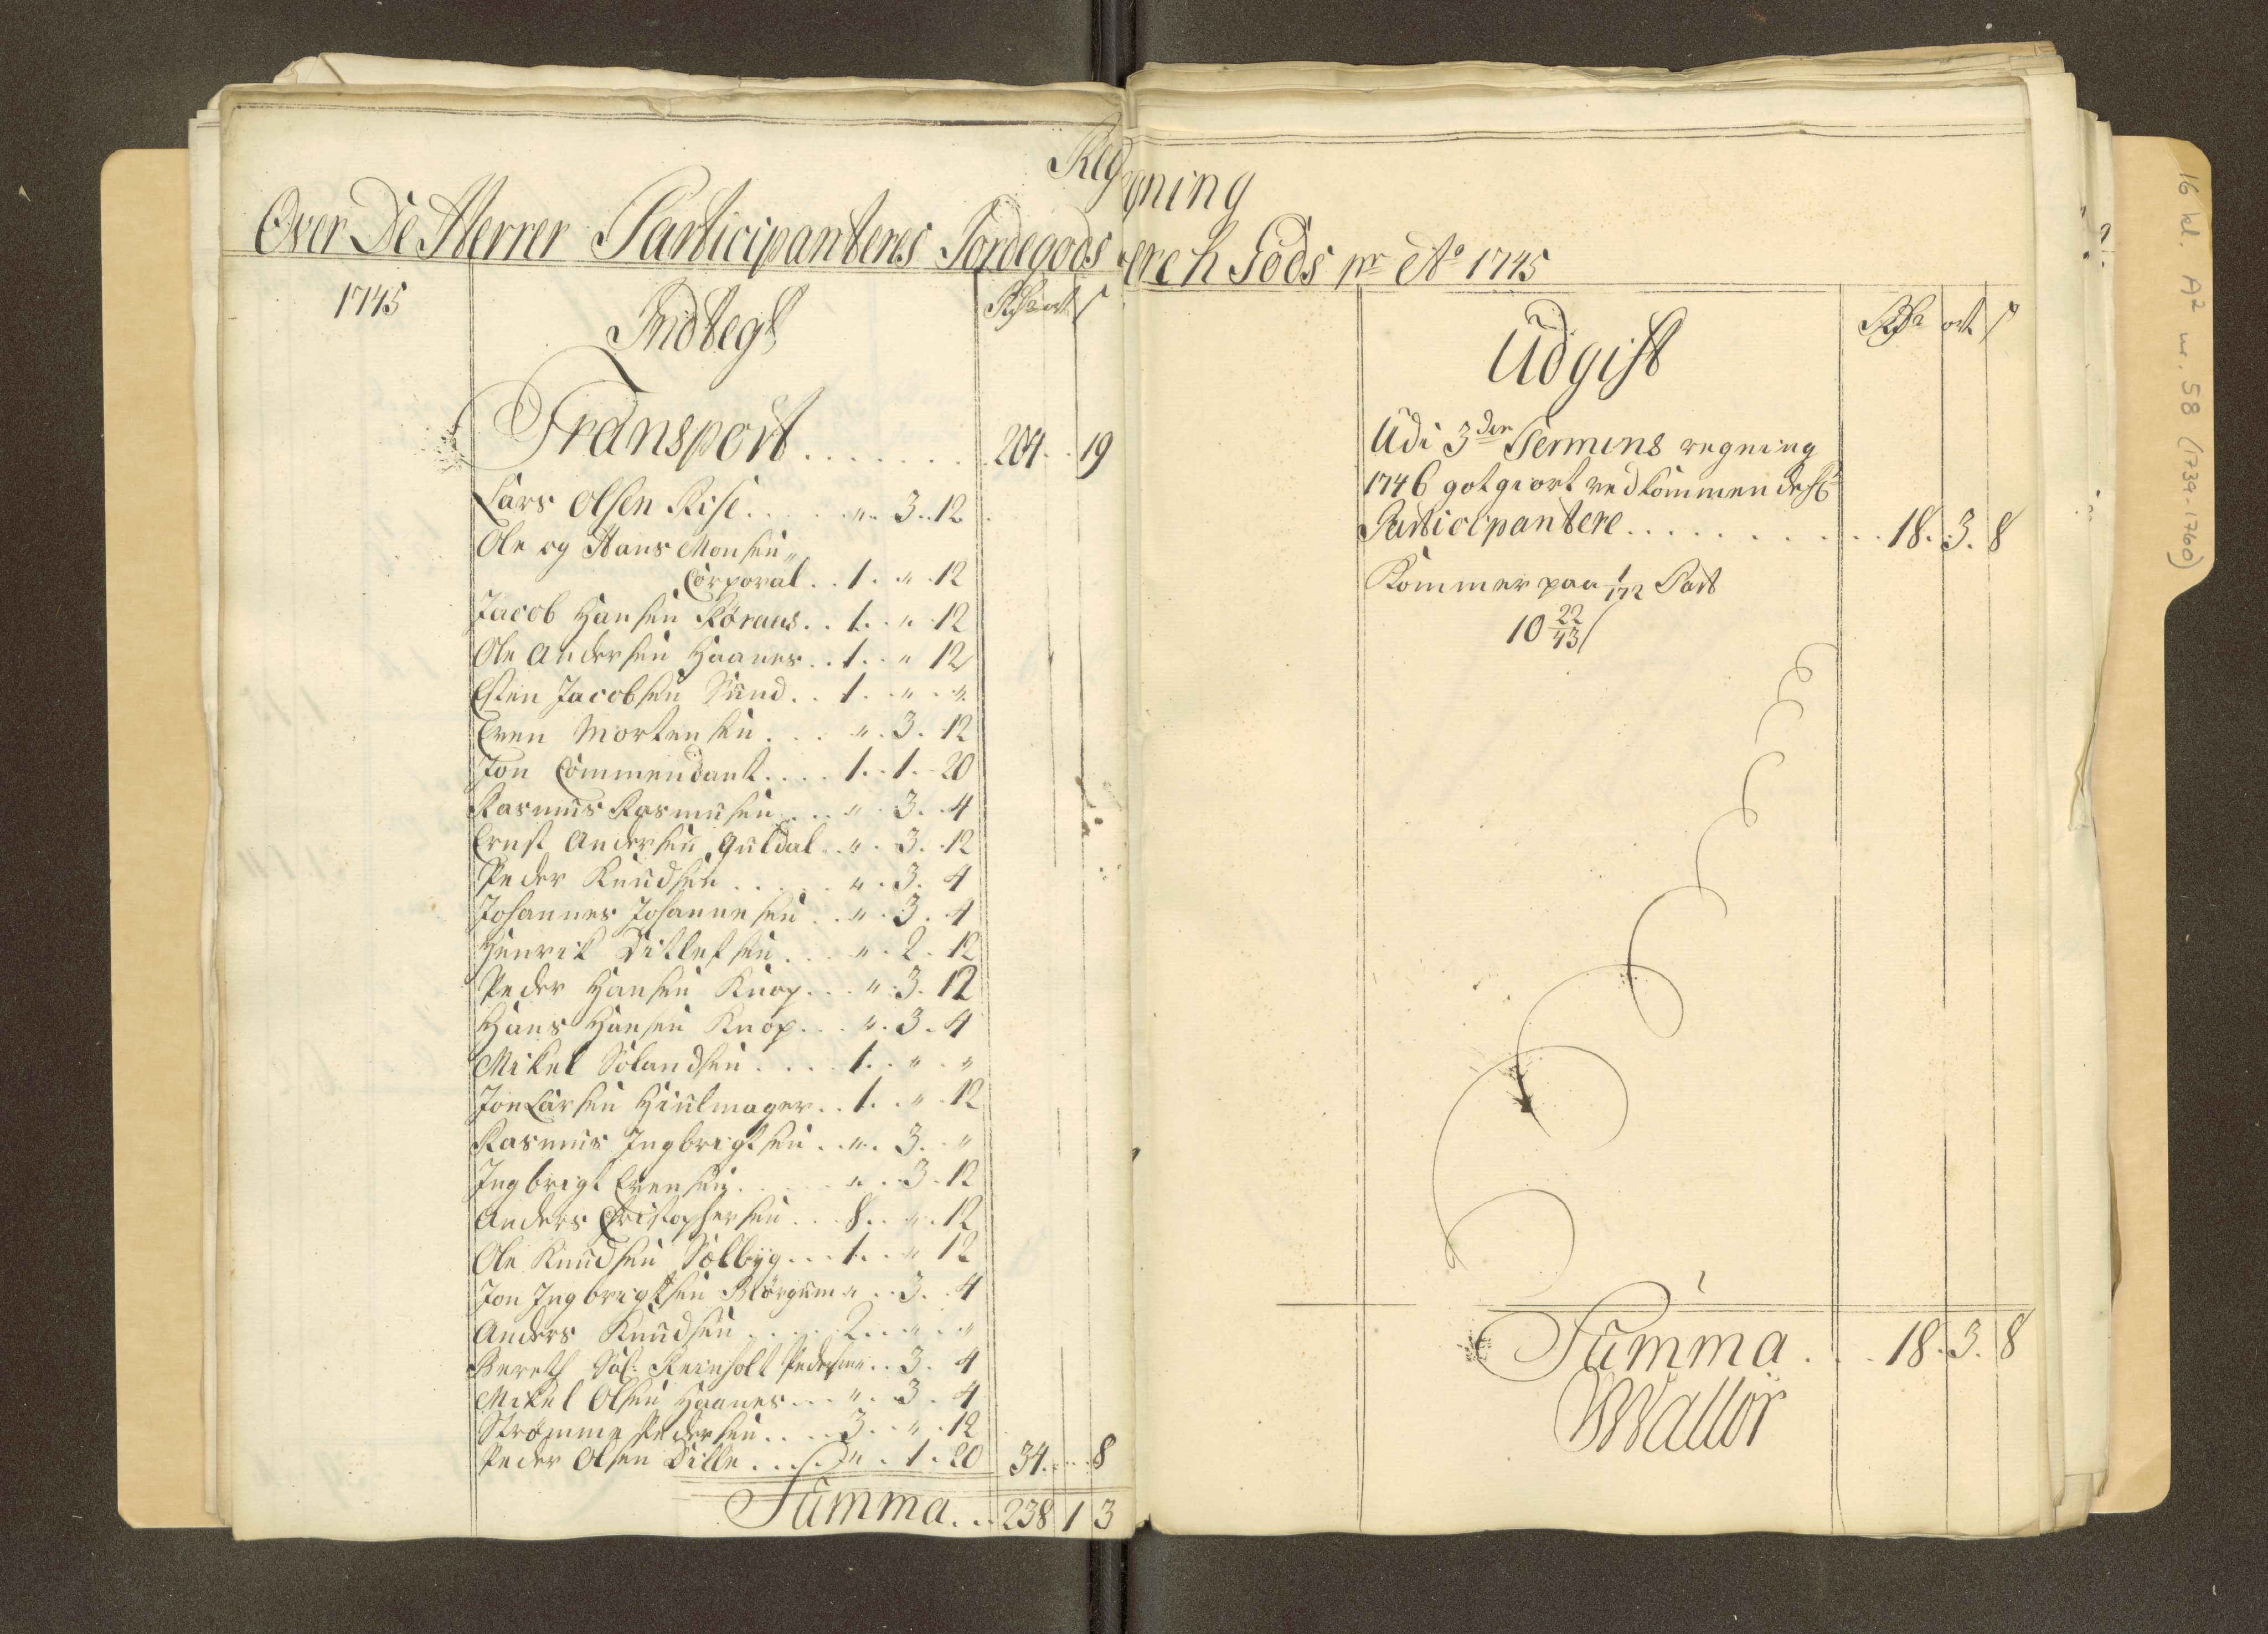 Reg
Over De Herrer Participanteres Jordegods
1745
Indtegt
Rdr ort s
Transport . . . . . . . 204 . . 19
Lars Olsen Rise . . . . . „ . 3 . 12
Ole og Hans Monsen
Corporal . . 1 . „ . 12
Jacob Hansen Røraas . . 1 . „ . 12
Ole Andersen Haanes . . 1 . . „ 12
Esten Jacobsen Sund . . 1 . „ . „
Even Mortensen . . . „ . 3 . 12
Jon Commendant . . . . 1 . . 1 . . 20
Rasmus Rasmusen . . . „ . 3 . . 4
Ernst Andersen Guldal . . „ . 3 . . 12
Peder Knudsen . . . . . „ . 3 . 4
Johannes Johannesen . . „ . 3 . 4
Henrik Ditlefsen . . . „ . 2 . 12
Peder Hansen Knop . . . „ . 3 . 12
Hans Hansen Knop . . . „ . 3 . 4
Mikel . . . . 1 . „ . „
Jon Larsen Hiulmager . . 1 . „ . 12
Rasmus Ingbrigtsen . . „ . 3 . „
Ingbrigt Evensen . . . . . „ . . 3 . 12
Anders Christophersen . . . 8 . . „ . 12
Ole Knudsen Sælbyg . . . 1 . . „ 12
Jon Ingbrigtsen „ . . 3 . . 4
Anders Knudsen . . . . . 2 . . „ . . „
Bereth Sal: Reinholt Peders . . 3 . 4
Mikel Olsen Haanes . . . „ . . 3 . 4
Strømme Pedersen . . . . 3 . . „ . 12
Peder Olsen Dille . . . . „ . 1 . 20 34 . . . 8
Summa . . 238 1 3
gning
erch Gods pr Ao 1745
Udgift
Rdr ort s
Udi 3den Termins regning
1746 gotgiort vedkommende H
Participantere . . . . . . . . . . . 18 . 3 . 8
Kommer paa 1/172 Part
10 22/43 s
Summa . . . 18 . 3 . 8
Wallør
16 kl. A2 nr. 58 (1739-1760)